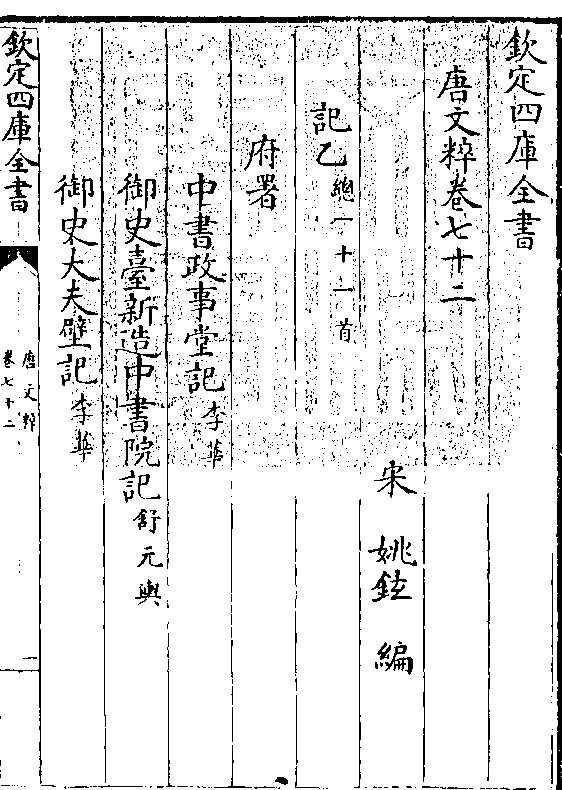 欽定四庫全書
唐文粹卷七十二
宋 姚鉉 編
記乙總一十一首
府署
中書政事堂記李華
御史臺新造中書院記舒元輿
御史大夫壁記李華
欽定四庫全書
唐文粹
卷七十二
一